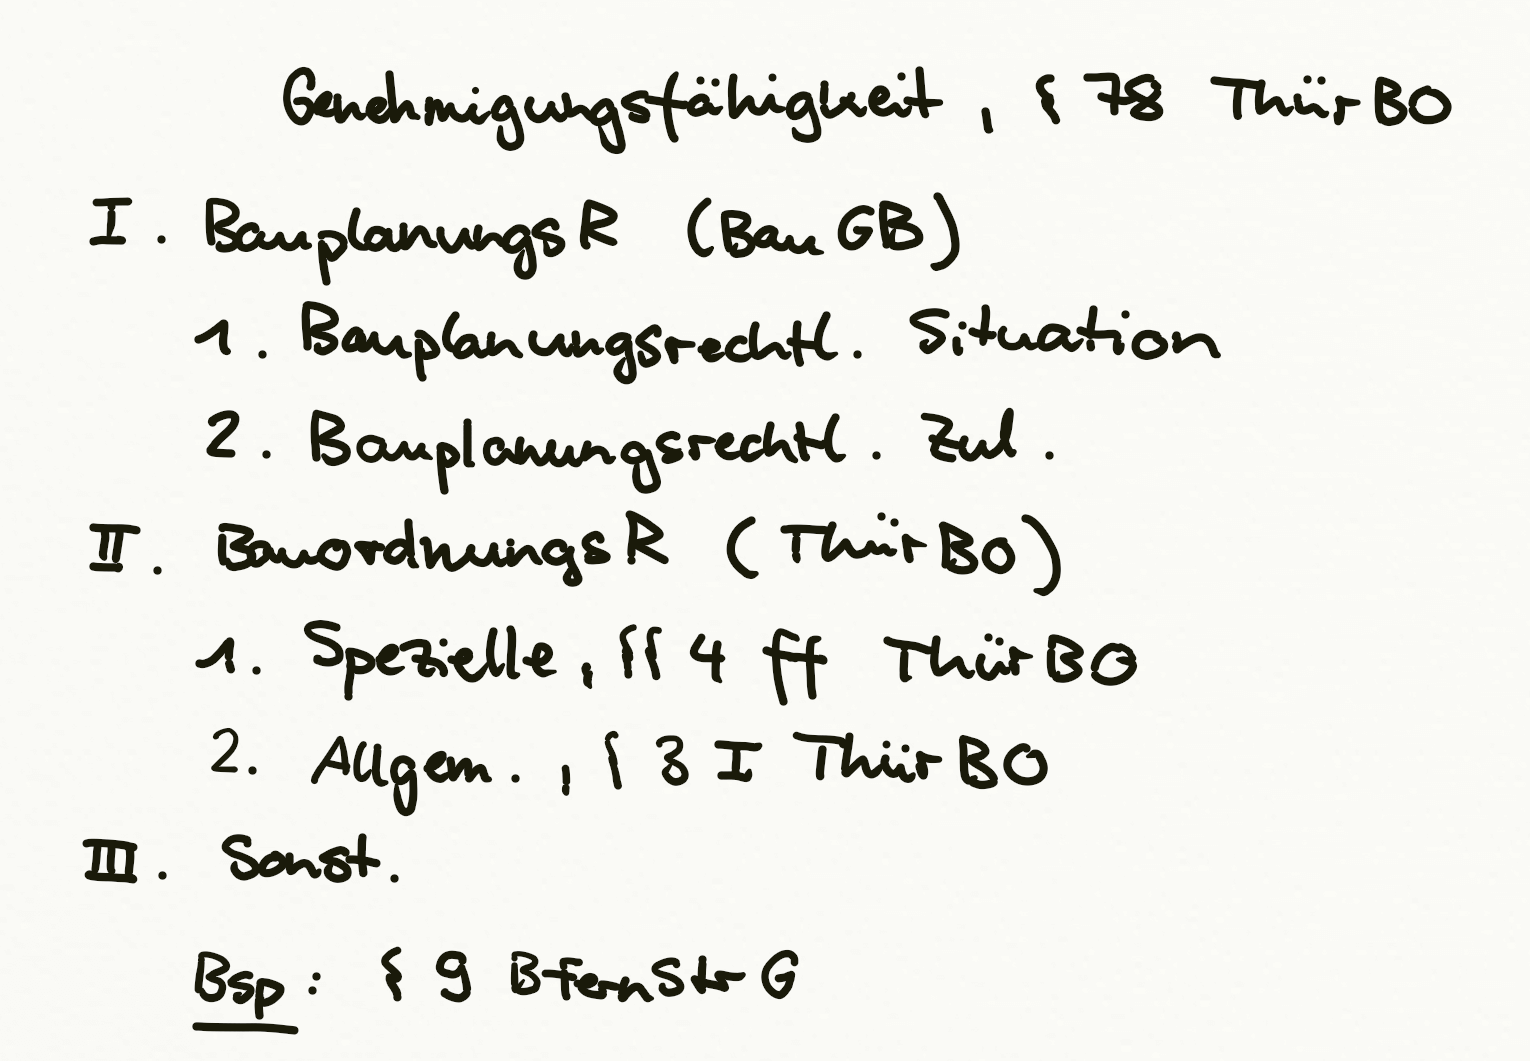 Genehmigungsfähigkeit, § 78 ThürBO
I. BauplanungsR (BauGB)
1. Bauplanungsrechtl. Situation
2. Bauplanungsrechtl. Zul.
II. BauordnungsR (ThürBO)
1. Spezielle, §§ 4 ff ThürBO
2. Allgem., § 3 I ThürBO
III. Sonst.
Bsp: § 9 BFernStrG